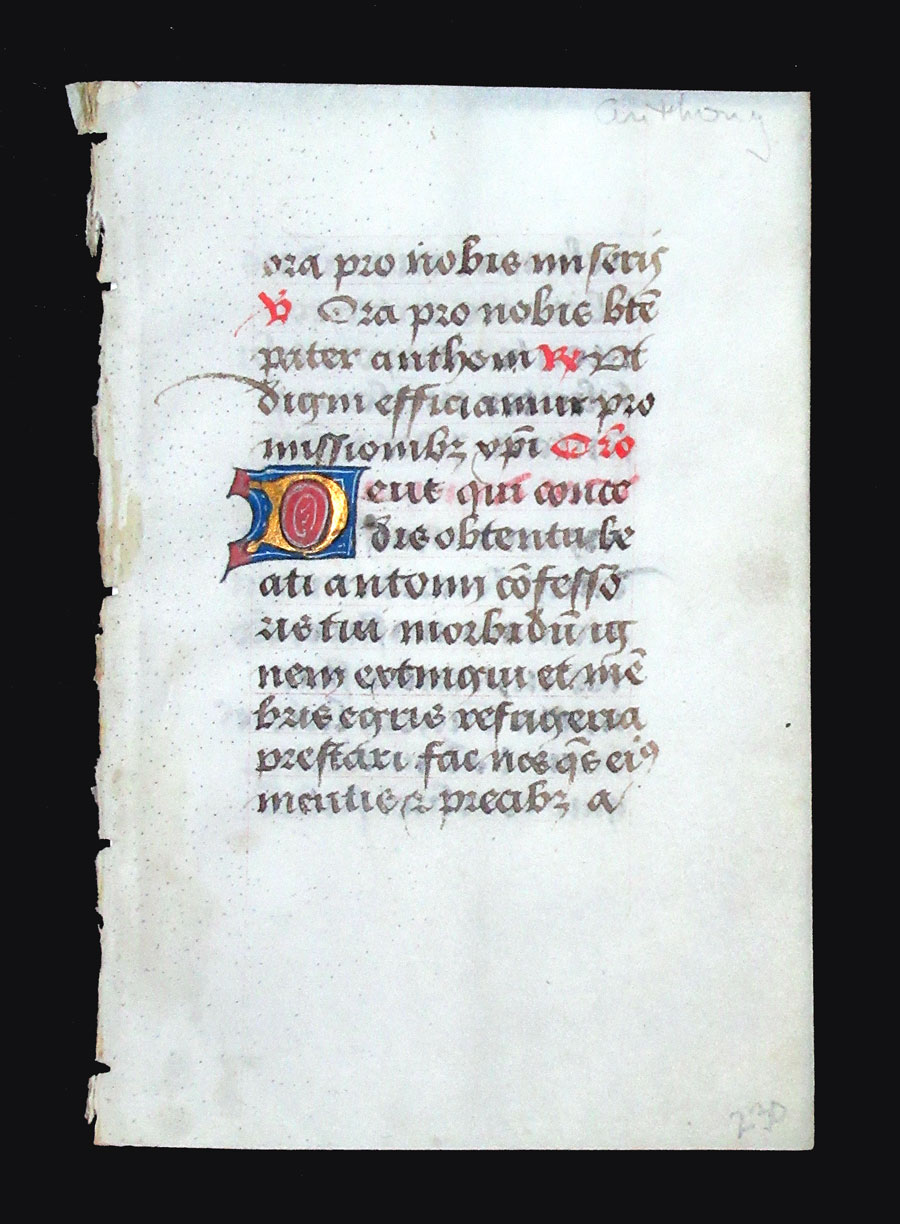 Anthony
ora pro nobis miseris
℣ Ora pro nobis btē
pater anthoni ℟ Ut
digni efficiamur pro
missionibꝫ xp̄i Orō
Deus qui conce
dis obtentu be
ati antonij cōfesso
ris tui morbidū ig
nem extingui et mē
bris egris refrigeria
prestari fac nos q̄s eiꝰ
meritis ⁊ precibꝫ a
230